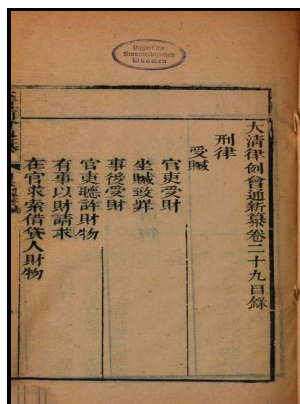 Bayerische
Staatsbibliothek
München
大清律例會通新纂卷二十九目錄
刑律
受贓
官吏受財
坐贓致罪
事後受財
官吏聽許財物
有事以財請求
在官求索借貸人財物